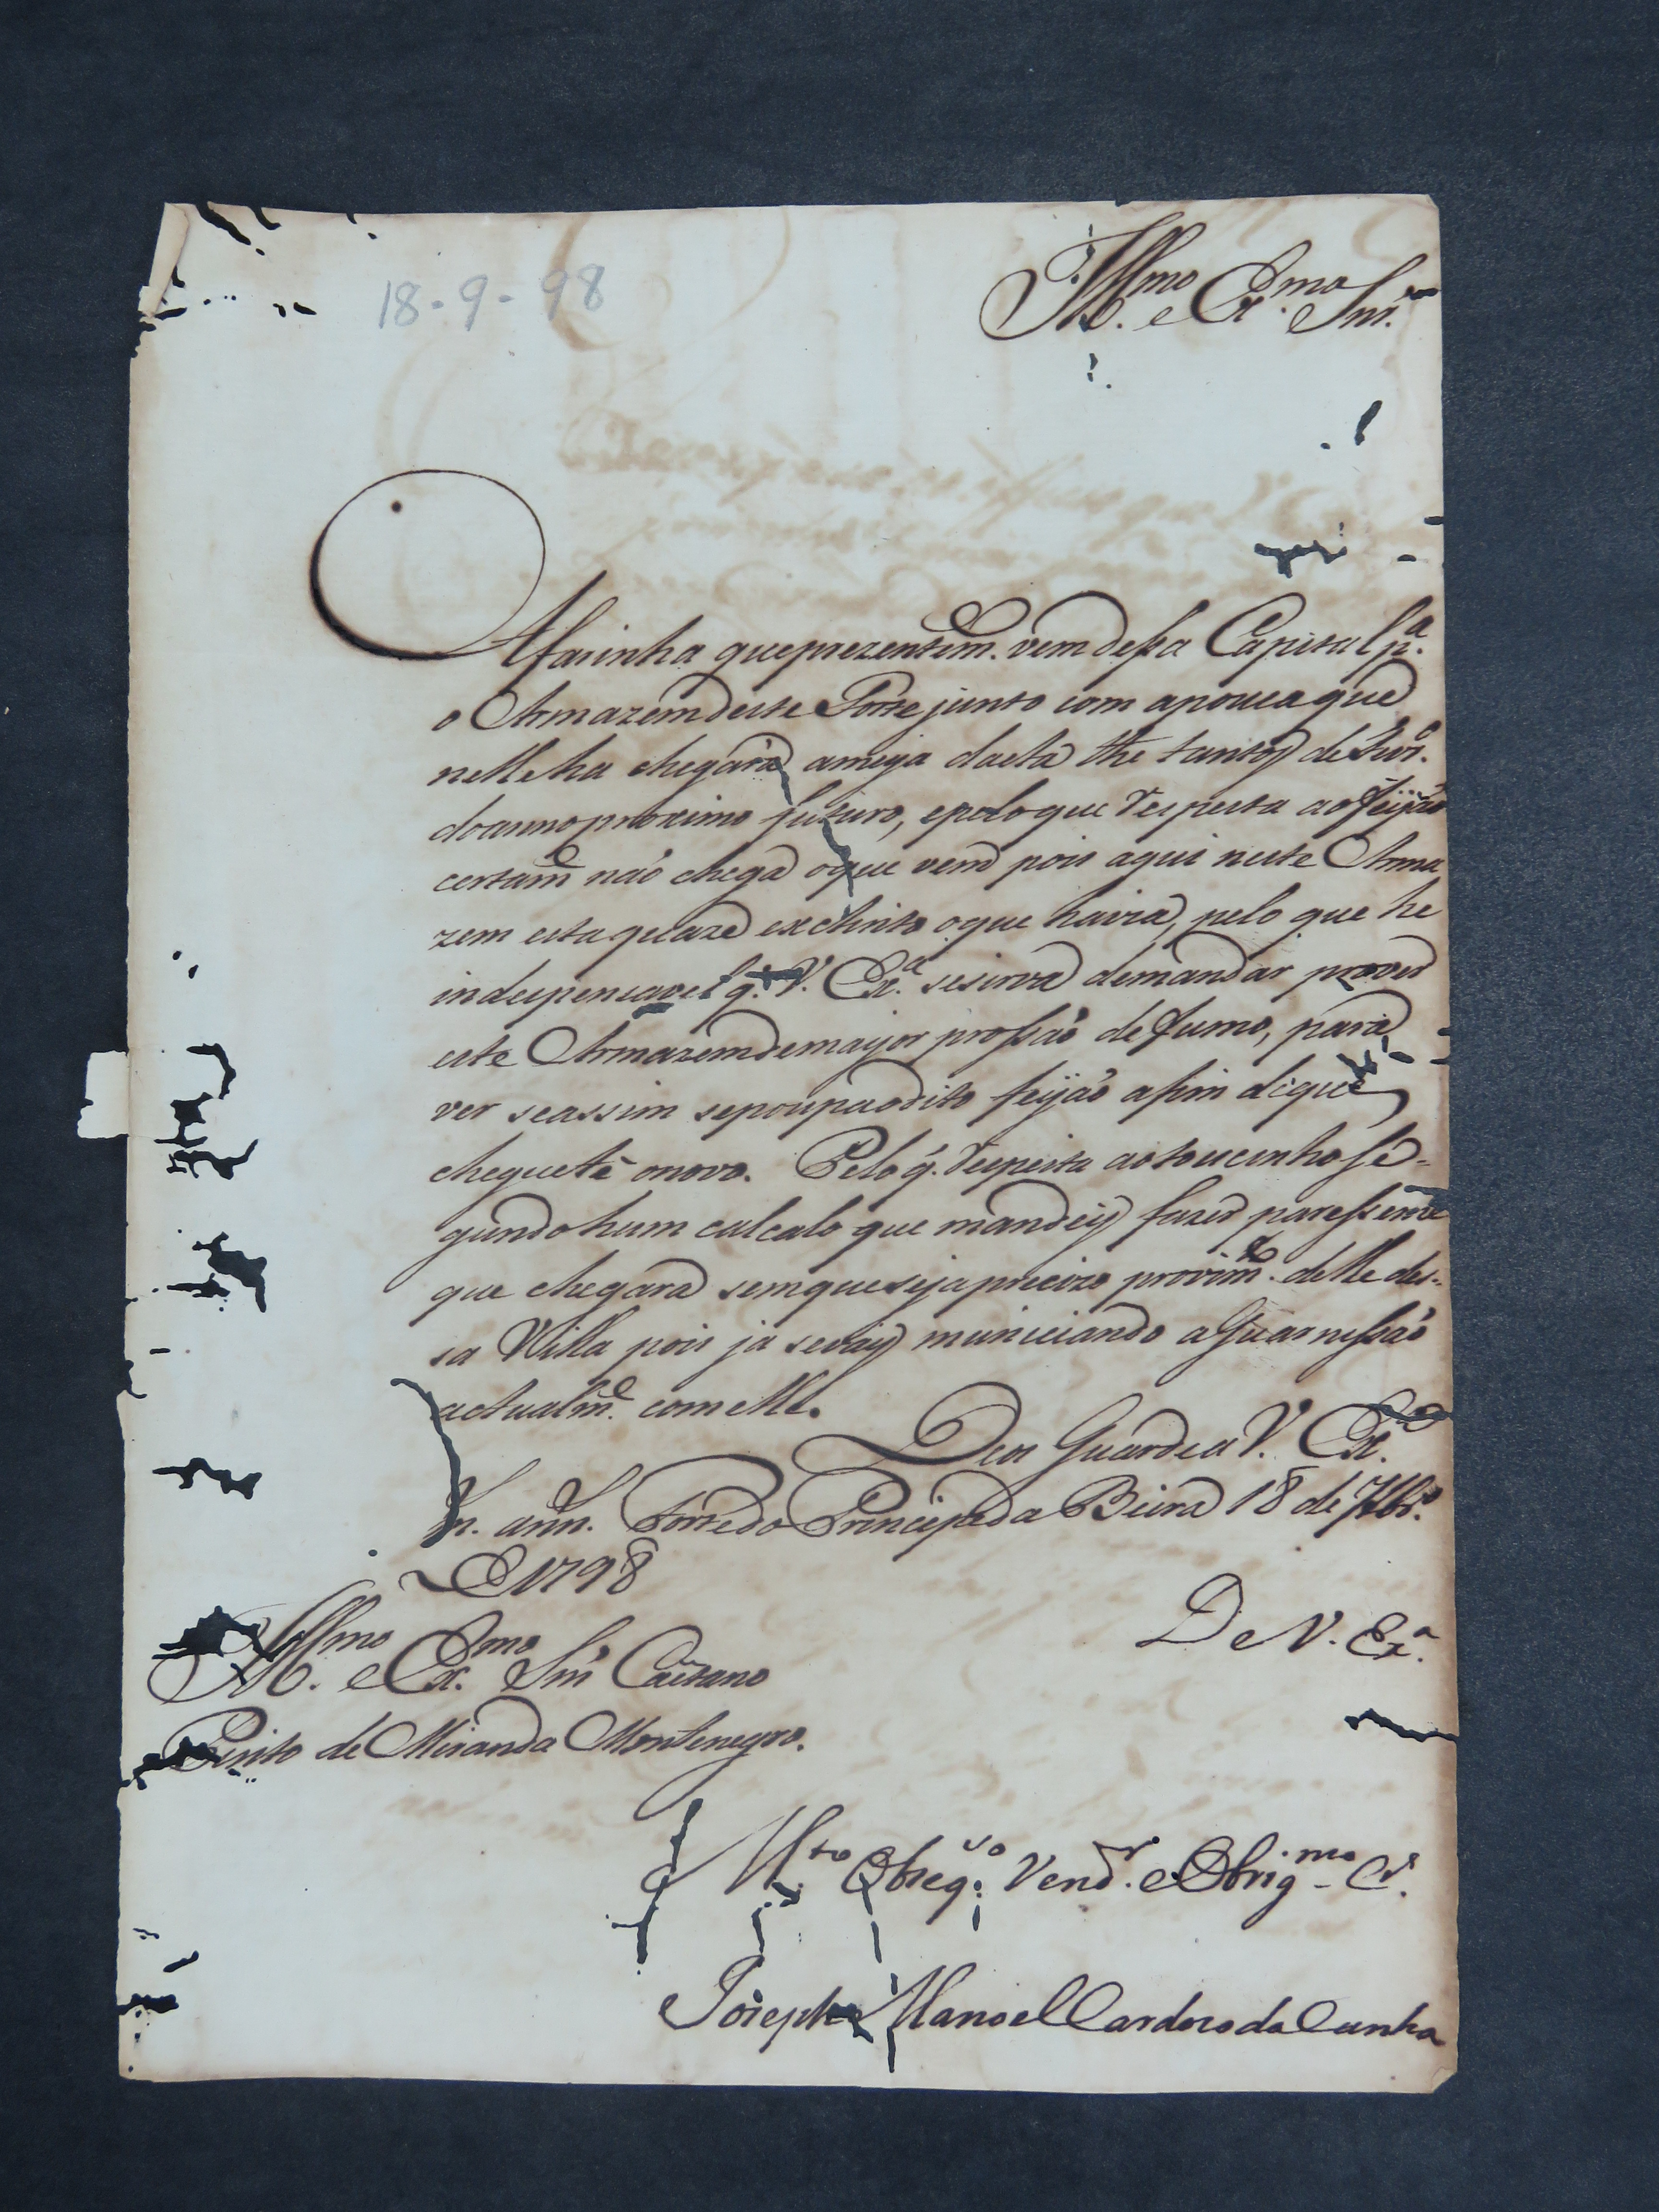 18-9-98
Ill.mo e Ex.mo Snr.
A farinha que prezentem.e vem dessa Capital p.a
o Armazem deste Forte junto com apouca que
nelle ha chegará ameya daeta the tantos de Fevr.o
do anno proximo futuro, epelo que respeita ao feijaõ
certam.e naõ chega oque vem pois aqui neste Arma
zem esta quaze exthinto oque havia, pelo que he
indespensavel q. V. Ex.a sesirva demandar prover
este Armazem demayor prossaõ de fumo, para
ver seassim sepoupaodito feijaõ afim deque
cheguetê onovo. Pelo q. respeita aotoucinho se-
gundo hum calcalo que mandey fazer paresseme
que chegara semquesejaprecizo provim.to delle des-
sa Villa pois ja sevay municiando aGuarnissaõ
actualm.e comelle.
Deos Guarde a V. Ex.a
m. ann. Forte do Principe da Beira 18 de 7br.o
de 1798
De V. Ex.a
Ill.mo e Ex.mo Snr Caetano
Pinto de Miranda Montenegro.
M.to Obseq.zo Vend.r e Obrig.mo Cr.
Joseph Manoel Cardozo da Cunha